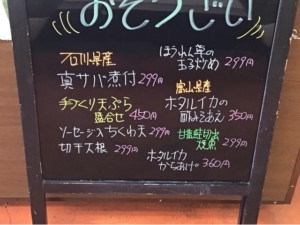 おそうざい
石川県産
真サバ煮付 299円
手づくり天ぷら
盛合せ 450円
ソーセージ入ちくわ天 299円
切干大根 299円
ほうれん草の
玉子炒め 299円
富山県産
ホタルイカの
酢みそあえ 350円
甘塩鮭切出
焼魚 299円
ホタルイカ
からあげ 360円